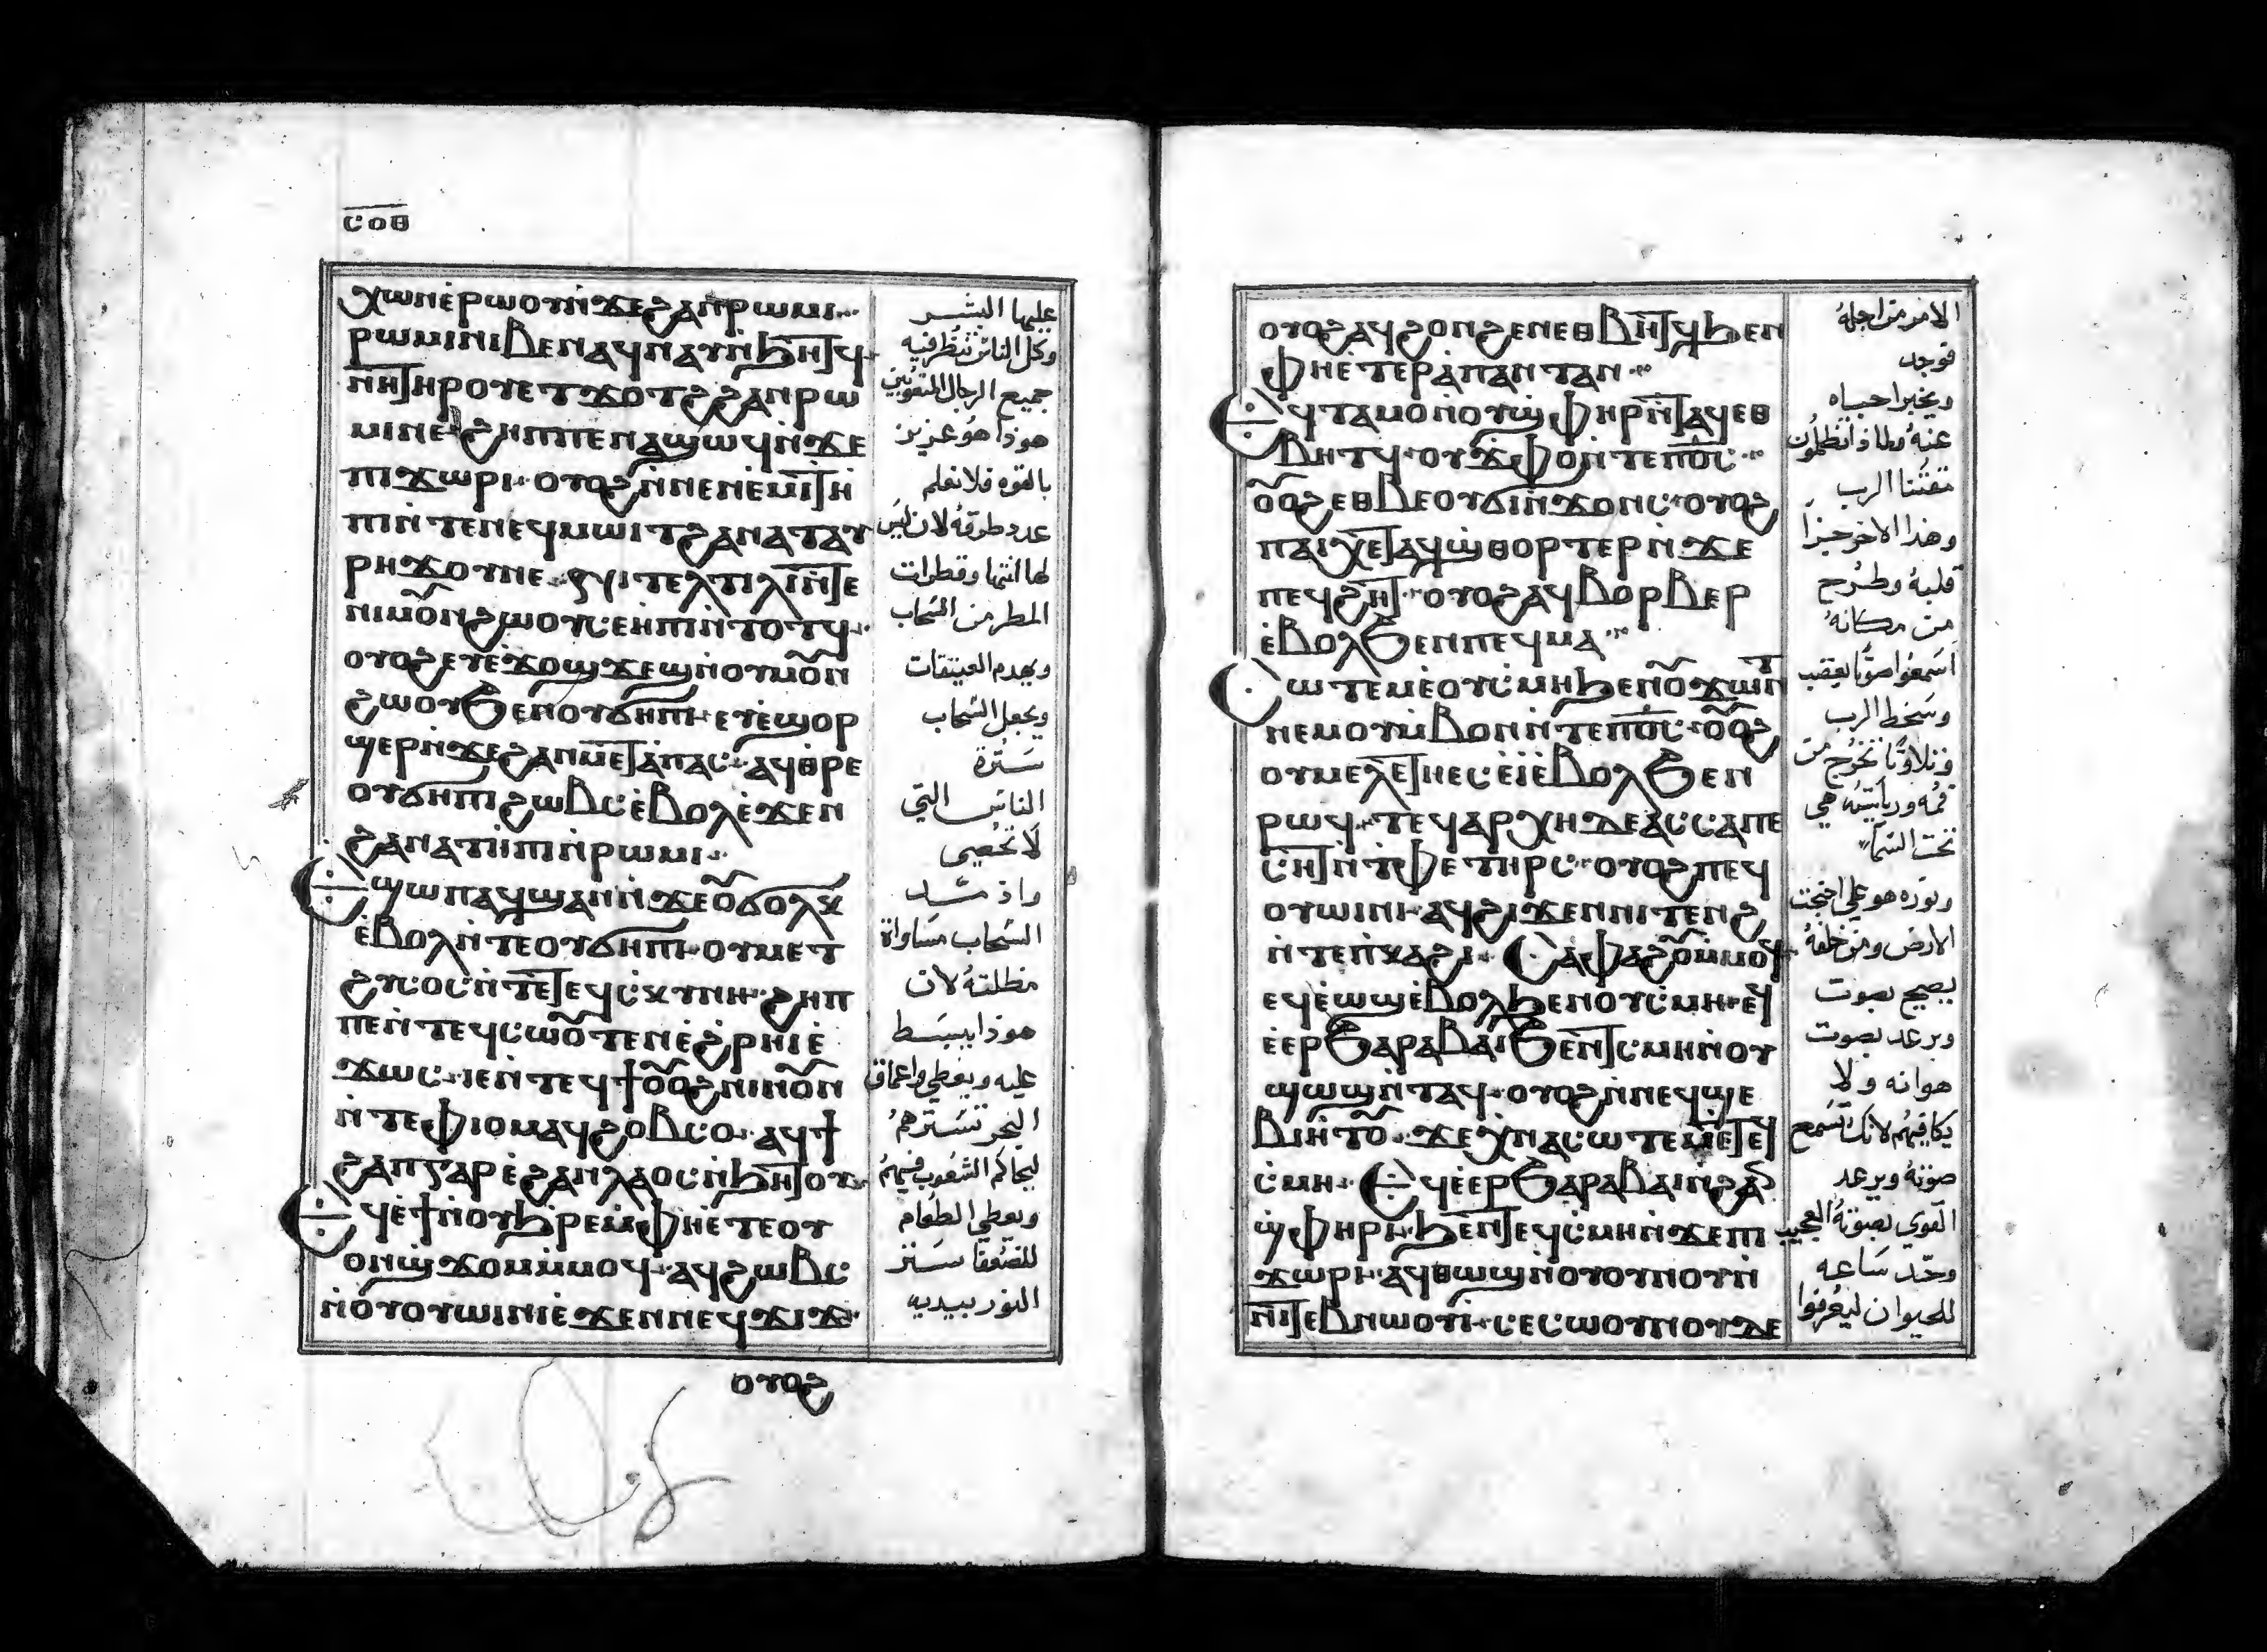 ⲥⲟⲑ
ⲭⲱⲛⲉ̀ⲣⲱⲟⲩⲛ̀ϫⲉϩⲁⲛⲣⲱⲙⲓ
ⲣⲱⲙⲓⲛⲓⲃⲉⲛⲁϥⲛⲁⲩⲛ̀ϧⲏⲧϥ
ⲛⲏⲧⲏⲣⲟⲩⲉⲧϫⲟⲧϩϩⲁⲛⲣⲱ
ⲙⲓⲛⲉ ϩⲏⲡⲡⲉⲛⲁϣⲱϥⲛ̀ϫⲉ
ⲡⲓϫⲱⲣⲓ ⲟⲩⲟϩⲛ̀ⲛⲉⲛⲉ̀ⲙⲓⲧⲏ
ⲡⲓⲛ̀ⲧⲉⲛⲉϥⲙⲱⲓⲧϩⲁⲛⲁⲧⲁⲩ
ⲣⲏϫⲟⲩⲛⲉ ϥⲓⲧⲉⲗⲧⲓⲗⲓⲛ̀ⲧⲉ
ⲛⲓⲙⲟ̃ⲛϩⲱⲟⲩⲥⲉⲏⲡⲓⲛ̀ⲧⲟⲧϥ
ⲟⲩⲟϩⲉⲩⲉ̀ϫⲟϣϫⲉϣⲛ̀ⲟⲩⲙⲟ̃ⲛ
ϩⲱⲟⲩϧⲉⲛⲟⲩϭⲏⲡⲓ ⲉⲩⲉ̀ϣⲟⲣ
ϣⲉⲣⲛ̀ϫⲉϩⲁⲛⲙⲉⲧⲁ̀ⲡⲁⲥ ⲁϥⲑⲣⲉ
ⲟⲩϭⲏⲡⲓϩⲱⲃⲥⲉ̀ⲃⲟⲗⲉ̀ϫⲉⲛ
ϩⲁⲛⲁⲧⲏ̀ⲡⲓⲛ̀ⲣⲱⲙⲓ
ⲉϣⲱⲡⲁϥϣⲁⲛⲛ̀ϫⲉⲟ̃ϭⲟⲗⲕ
ⲉ̀ⲃⲟⲗⲛ̀ⲧⲉⲟⲩϭⲏⲡⲓ ⲟⲩⲙⲉⲧ
ϩⲩⲥⲟⲥⲛ̀ⲧⲉⲧⲉϥⲥⲕⲩⲛⲏ ϩⲏⲡ
ⲡⲉⲛ̀ⲧⲉϥⲥⲱⲟ̃ⲧⲉⲛⲉ̀ϩ̀ⲣⲏⲓⲉ̀
ϫⲱⲥ ⲓⲉⲛ̀ⲧⲉϥϯⲟ̃ⲟϩⲛⲓⲛⲟ̃ⲛ
ⲛ̀ⲧⲉⲫⲓⲟⲙⲁϥϩⲟⲃⲥⲟ ⲁϥϯ
ϩⲁⲡⲅⲁⲣⲉ̀ϩⲁⲛⲗⲁⲟⲥⲛ̀ϧⲏⲧⲟⲩ
ⲉϥⲉ̀ϯⲛ̀ⲟⲩϧⲣⲉⲙ̀ⲫⲏⲉ̀ⲧⲉⲟⲩ
ⲟⲛϣϫⲟⲙⲙ̀ⲙⲟϥ ⲁϥϩⲱⲃⲥ
ⲛ̀ⲟⲩⲟⲩⲱⲓⲛⲓⲉ̀ϫⲉⲛⲛⲉϥϫⲓϫ
ⲟⲩⲟϩ
عليها البشر
وكل الناس تنظر فيه
جميع الرجال المنقوبين
هوذا هو عزيز
بالقوه فلا نعلم
عدد طرقه لان ليس
لها انتها وقطرات
المطر من السحاب
ويهدم العنقات
ويجعل السحاب
سترة
الناس التي
لا تحصى
واذ مد
السحاب مساواة
مظلته لان
هوذا يبسط
عليه ويغطي واعماق
البحر تسترهم
ليحاكم الشعوب فيهم
ويعطي الطعام
للضعفا ستر
النور بيديه
ⲟⲩⲟϩⲁϥϩⲟⲛϩⲉⲛⲉⲑⲃⲏⲧϥϧⲉⲛ
ⲫⲏⲉ̀ⲧⲉⲣⲁ̀ⲡⲁⲛⲧⲁⲛ
ⲉϥⲧⲁⲙⲟⲛ̀ⲟⲩϣ̀ⲫⲏⲣⲛ̀ⲧⲁϥⲉⲑ
ⲃⲏⲧϥ ⲟⲩϫ̀ⲫⲟⲛ̀ⲧⲉⲡⲟ̅ⲥ̅
ⲟ̃ⲟϩⲉⲑⲃⲉⲟⲩϭⲓⲛ̀ϫⲟⲛⲥ ⲟⲩⲟϩ
ⲡⲁⲓⲭⲉⲧⲁϥϣ̀ⲑⲟⲣⲧⲉⲣⲛ̀ϫⲉ
ⲡⲉϥϩⲏⲧ ⲟⲩⲟϩⲁϥⲃⲟⲣⲃⲉⲣ
ⲉ̀ⲃⲟⲗϧⲉⲛⲡⲉϥⲙⲁ
ⲥⲱⲧⲉⲙⲉ̀ⲟⲩⲥ̀ⲙⲏϧⲉⲛⲟ̃ϫⲱⲛⲧ
ⲛⲉⲙⲟⲩⲙ̀ⲃⲟⲛⲛ̀ⲧⲉⲡⲟ̅ⲥ̅ ⲟ̃ⲟϩ
ⲟⲩⲙⲉⲗⲉⲧⲏⲉⲥⲉ̀ⲓ̀ⲉ̀ⲃⲟⲗϧⲉⲛ
ⲣⲱϥ ⲧⲉϥⲁⲣⲭⲏⲇⲉⲁⲥⲥⲁⲡⲉ
ⲥⲏⲧⲛ̀ⲧ̀ⲫⲉⲧⲏⲣⲥ ⲟⲩⲟϩⲡⲉϥ
ⲟⲩⲱⲓⲛⲓ ⲁϥϩⲓϫⲉⲛⲛⲓⲧⲉⲛϩ
ⲛ̀ⲧⲉⲡ̀ⲕⲁϩⲓ ⲥⲁⲫⲁϩⲟ̃ⲙ̀ⲙⲟϥ
ⲉϥⲉ̀ⲱϣⲉ̀ⲃⲟⲗϧⲉⲛⲟⲩⲥ̀ⲙⲏ ⲉϥ
ⲉ̀ⲉⲣϧⲁⲣⲁⲃⲁⲓϧⲉⲛ̀ⲧⲥ̀ⲙⲏⲛ̀ⲟⲩ
ϣⲱϣⲛ̀ⲧⲁϥ ⲟⲩⲟϩⲛ̀ⲛⲉϥϣⲉ
ⲃⲓⲏ̀ⲧⲟ̃ ϫⲉⲭ̀ⲛⲁⲥⲱⲧⲉⲙⲉ̀ⲧⲉϥ
ⲥ̀ⲙⲏ ⲉϥⲉ̀ⲉⲣϧⲁⲣⲁⲃⲁⲓⲛ̀ϩⲁ
ϣ̀ⲫⲏⲣⲓ ϧⲉⲛⲧⲉϥⲥ̀ⲙⲏⲛ̀ϫⲉⲡⲓ
ϫⲱⲣⲓ ⲁϥⲑⲱϣⲛ̀ⲟⲩⲟⲩⲛⲟⲩⲛ̀
ⲛⲓⲧⲉⲃⲛⲱⲟⲩⲓ ⲥⲉⲥⲱⲟⲩⲛⲟⲩⲇⲉ
الامر من اجله
فوجد
ويخبر احباه
عنه
مقتنا الرب
وهذا الاخر حيزا
قلبه وطرح
من مكانه
اسمعوا صوتا بغضب
وسخط الرب
وتلاوتا تخرج من
فمه ورياسته هي
تحت السما
ونوره هو علي اجنحت
الارض ومن خلفه
يصيح بصوت
ويرعد بصوت
هوانه ولا
يكافيهم لانك تسمع
صوته ويرعد
القوي بصوته العجيب
وحدد ساعه
للحيوان ليعرفوا